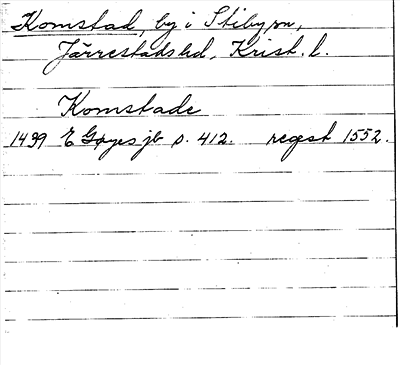 Komstad, by i Stiby sn,
Järrestads hd, Krist. l.
Komstade
1499 E Gøyes jb s. 412. regest 1552.